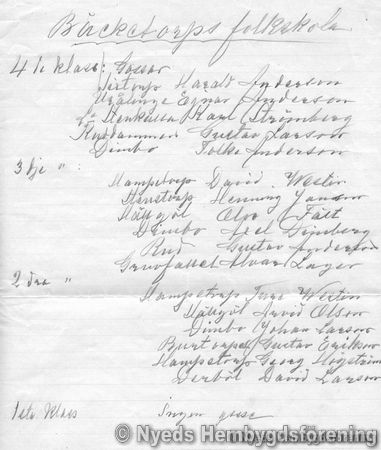 Bäcketorps folkskola
4 de klass: Gossar
Harald Anderson
Egnar Anderson
Stenkulla Karl Strömberg
Kvddammen Gustav Larson
Dimbo Tolke Anderson
3 dje " :
Hampetorp David Westin
Henning Janson
Hällgöl Olov Fält
Dimbo Axel Grönberg
Rud Gustav Anderson
Gruvfallet Alvar Lager
2 dra "
Hampetorp Ture Westin
Hällgöl Arvid Olson
Dimbo Johan Larson
Gustav Erikson
Hampetorp Georg Högström
Derbol David Larson
1 sta klass Ingen gosse
© Nyeds Hembygdsförening